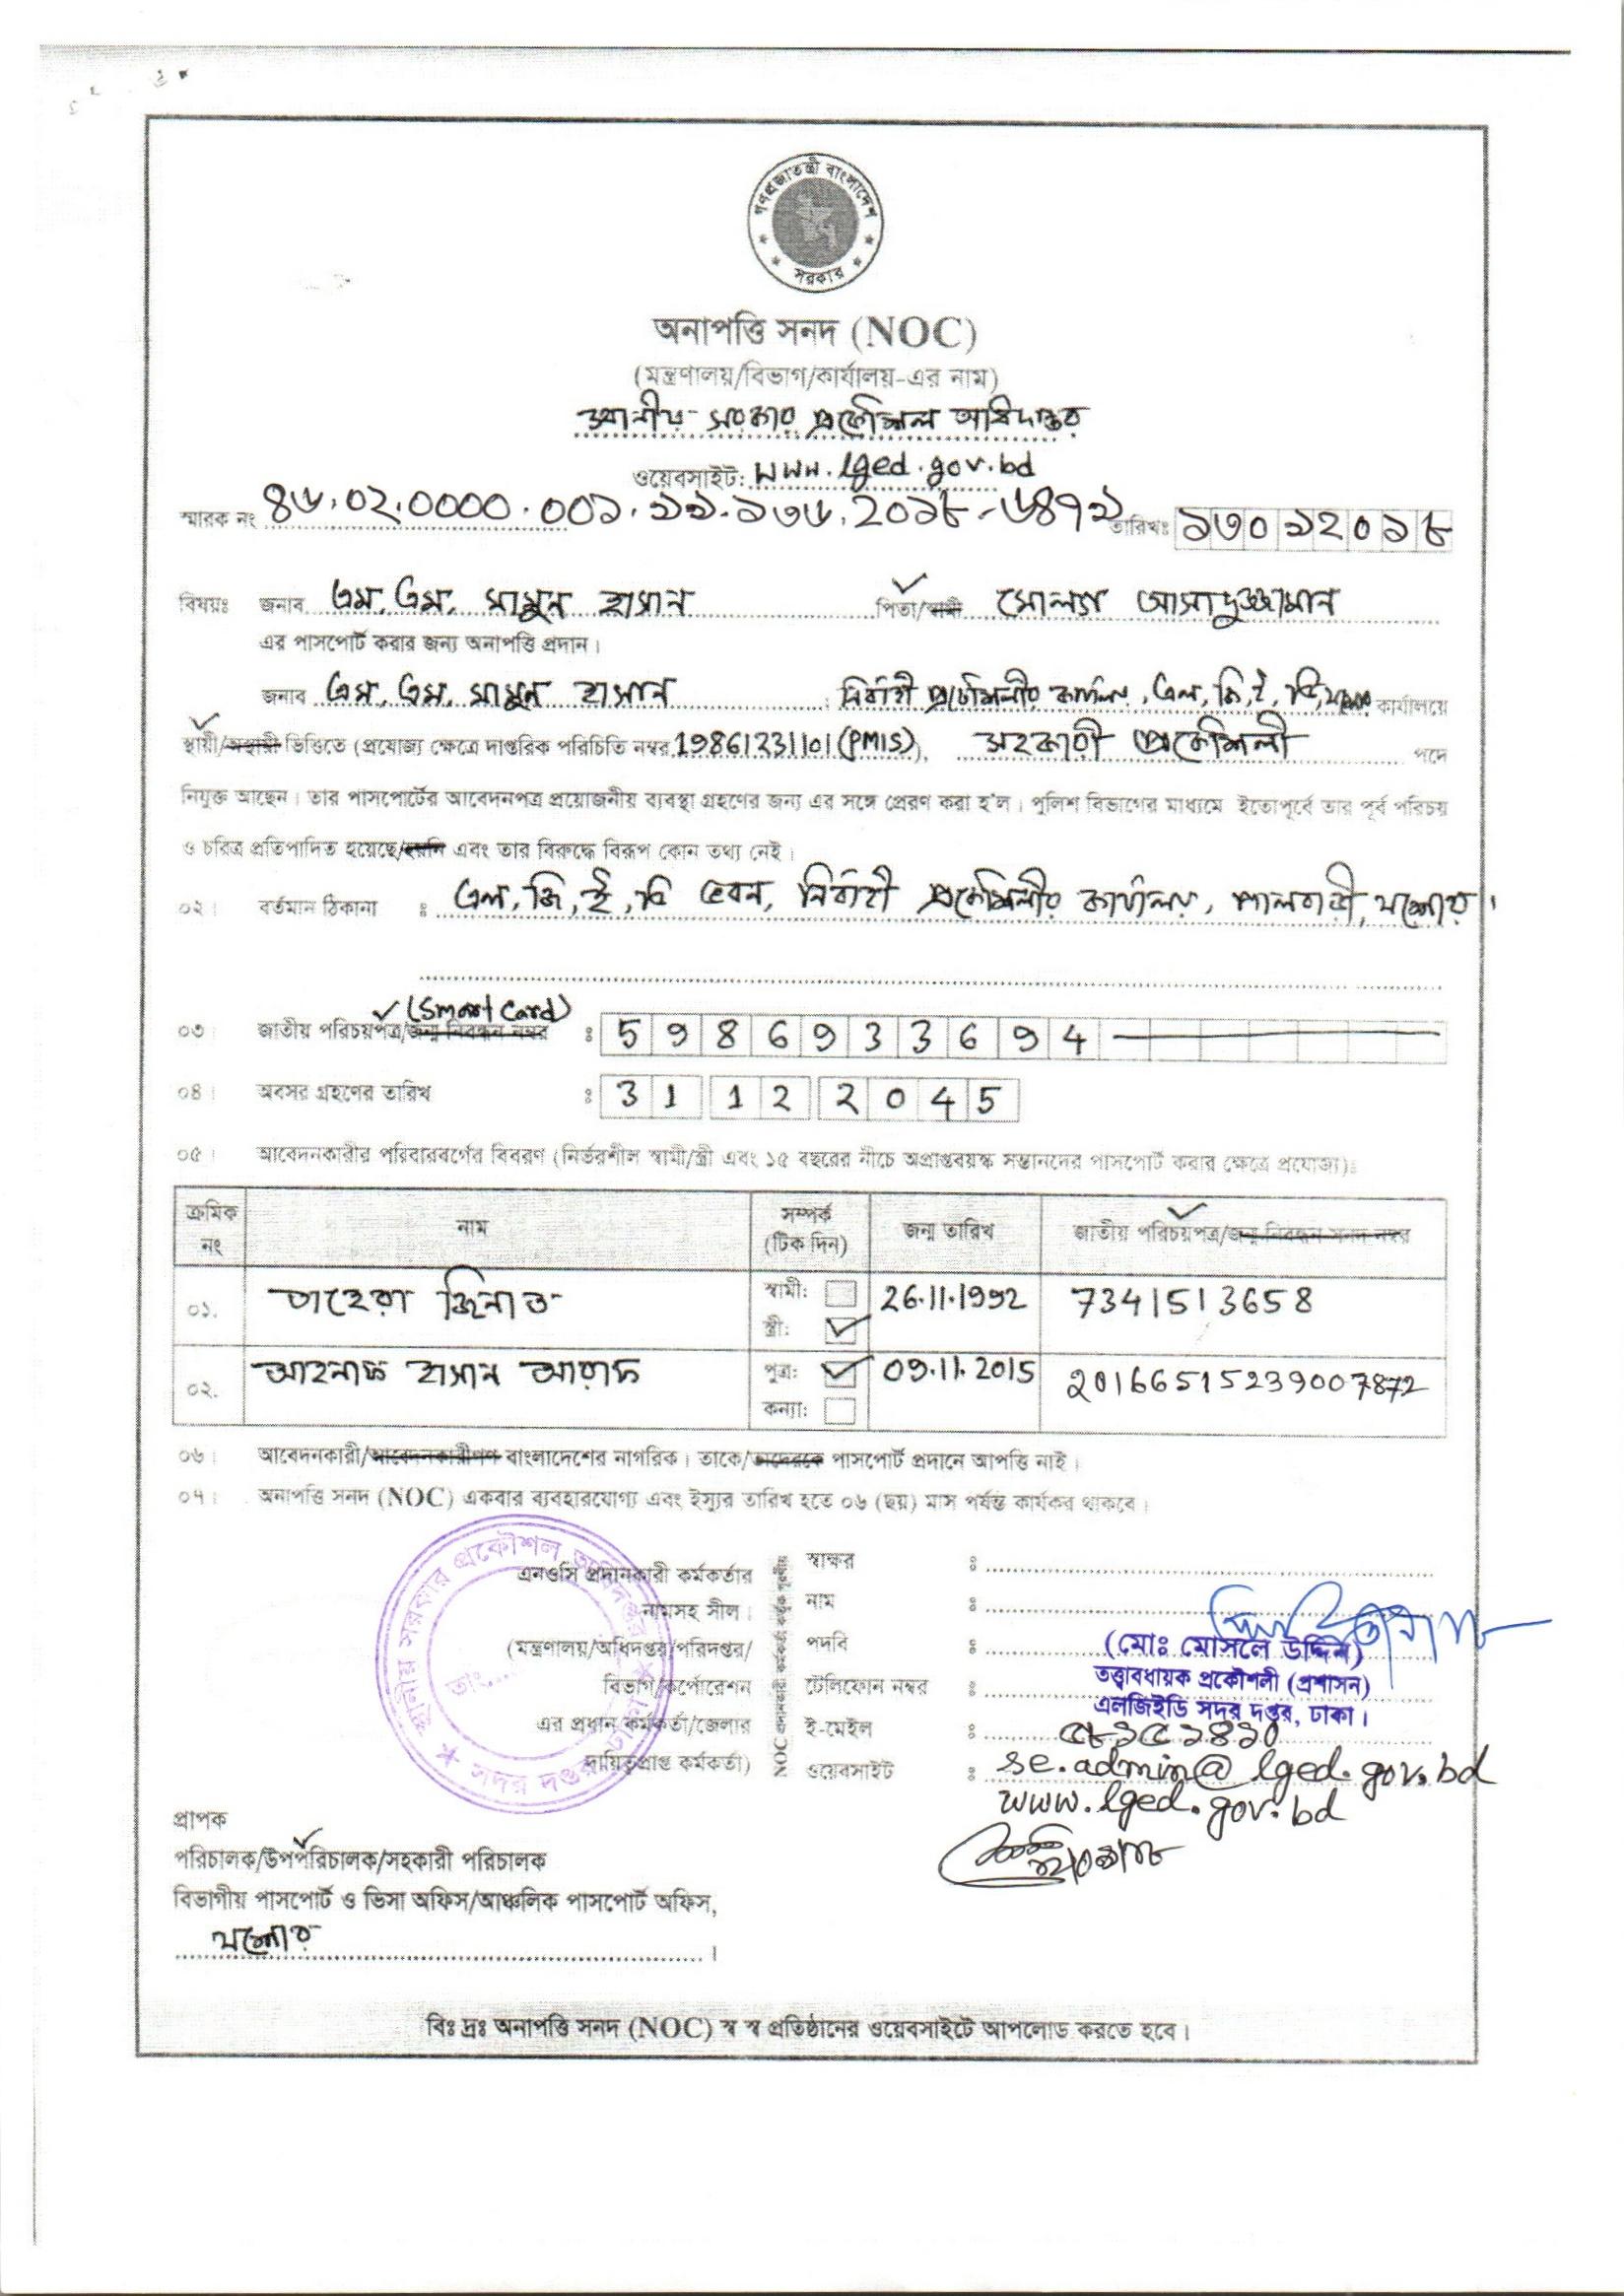 গণপ্রজাতন্ত্রী বাংলাদেশ
সরকার
অনাপত্তি সনদ (NOC)
(মন্ত্রণালয়/বিভাগ/কার্যালয়-এর নাম)
স্থানীয় সরকার প্রকৌশল অধিদপ্তর
ওয়েবসাইট: www.lged.gov.bd
স্মারক নং ৪৬.০২.০০০০.০০১.১৯.১৩৬.২০১৮-৬৪৭২ তারিখঃ ১৩০৯২০১৮
বিষয়ঃ জনাব এম, এম, মামুন হাসান পিতা/স্বামী মোলগা আসাদুজ্জামান
এর পাসপোর্ট করার জন্য অনাপত্তি প্রদান।
জনাব এম, এম, মামুন হাসান, নির্বাহী প্রকৌশলীর কার্যালয়, এল, জি, ই, ডি, যশোর কার্যালয়ে
স্থায়ী/অস্থায়ী ভিত্তিতে (প্রযোজ্য ক্ষেত্রে দাপ্তরিক পরিচিতি নম্বর 19861231101 (PMIS)), সহকারী প্রকৌশলী পদে
নিযুক্ত আছেন। তার পাসপোর্টের আবেদনপত্র প্রয়োজনীয় ব্যবস্থা গ্রহণের জন্য এর সঙ্গে প্রেরণ করা হ'ল। পুলিশ বিভাগের মাধ্যমে ইতোপূর্বে তার পূর্ব পরিচয়
ও চরিত্র প্রতিপাদিত হয়েছে/হয়নি এবং তার বিরুদ্ধে বিরূপ কোন তথ্য নেই।
০২। বর্তমান ঠিকানা ঃ এল, জি, ই, ডি ভবন, নির্বাহী প্রকৌশলীর কার্যালয়, পালবাড়ী, যশোর।
(Smart Card)
০৩। জাতীয় পরিচয়পত্র/জন্ম নিবন্ধন নম্বর ঃ 5986933694
০৪। অবসর গ্রহণের তারিখ ঃ 31 12 2045
০৫। আবেদনকারীর পরিবারবর্গের বিবরণ (নির্ভরশীল স্বামী/স্ত্রী এবং ১৫ বছরের নীচে অপ্রাপ্তবয়স্ক সন্তানদের পাসপোর্ট করার ক্ষেত্রে প্রযোজ্য)ঃ
ক্রমিক নং নাম সম্পর্ক (টিক দিন) জন্ম তারিখ জাতীয় পরিচয়পত্র/জন্ম নিবন্ধন সনদ নম্বর
০১. তাহেরা জিনাত স্বামী: স্ত্রী: 26.11.1992 7341513658
০২. আহনাফ হাসান আরাফ পুত্র: কন্যা: 09.11.2015 20166515239007872
০৬। আবেদনকারী/আবেদনকারীগণ বাংলাদেশের নাগরিক। তাকে/তাদেরকে পাসপোর্ট প্রদানে আপত্তি নাই।
০৭। অনাপত্তি সনদ (NOC) একবার ব্যবহারযোগ্য এবং ইস্যুর তারিখ হতে ০৬ (ছয়) মাস পর্যন্ত কার্যকর থাকবে।
স্থানীয় সরকার প্রকৌশল অধিদপ্তর
সদর দপ্তর, ঢাকা
তাং...
এনওসি প্রদানকারী কর্মকর্তার
নামসহ সীল।
(মন্ত্রণালয়/অধিদপ্তর/পরিদপ্তর/
বিভাগ/কর্পোরেশন
এর প্রধান কর্মকর্তা/জেলার
দায়িত্বপ্রাপ্ত কর্মকর্তা)
NOC প্রদানকারী কর্মকর্তা কর্তৃক পূরণীয়
স্বাক্ষর ঃ
নাম ঃ
পদবি ঃ
টেলিফোন নম্বর ঃ
ই-মেইল ঃ
ওয়েবসাইট ঃ
(মোঃ মোসলে উদ্দিন)
তত্ত্বাবধায়ক প্রকৌশলী (প্রশাসন)
এলজিইডি সদর দপ্তর, ঢাকা।
৫৮১৫১৪১০
se.admin@lged.gov.bd
www.lged.gov.bd
প্রাপক
পরিচালক/উপপরিচালক/সহকারী পরিচালক
বিভাগীয় পাসপোর্ট ও ভিসা অফিস/আঞ্চলিক পাসপোর্ট অফিস,
যশোর।
বিঃ দ্রঃ অনাপত্তি সনদ (NOC) স্ব স্ব প্রতিষ্ঠানের ওয়েবসাইটে আপলোড করতে হবে।